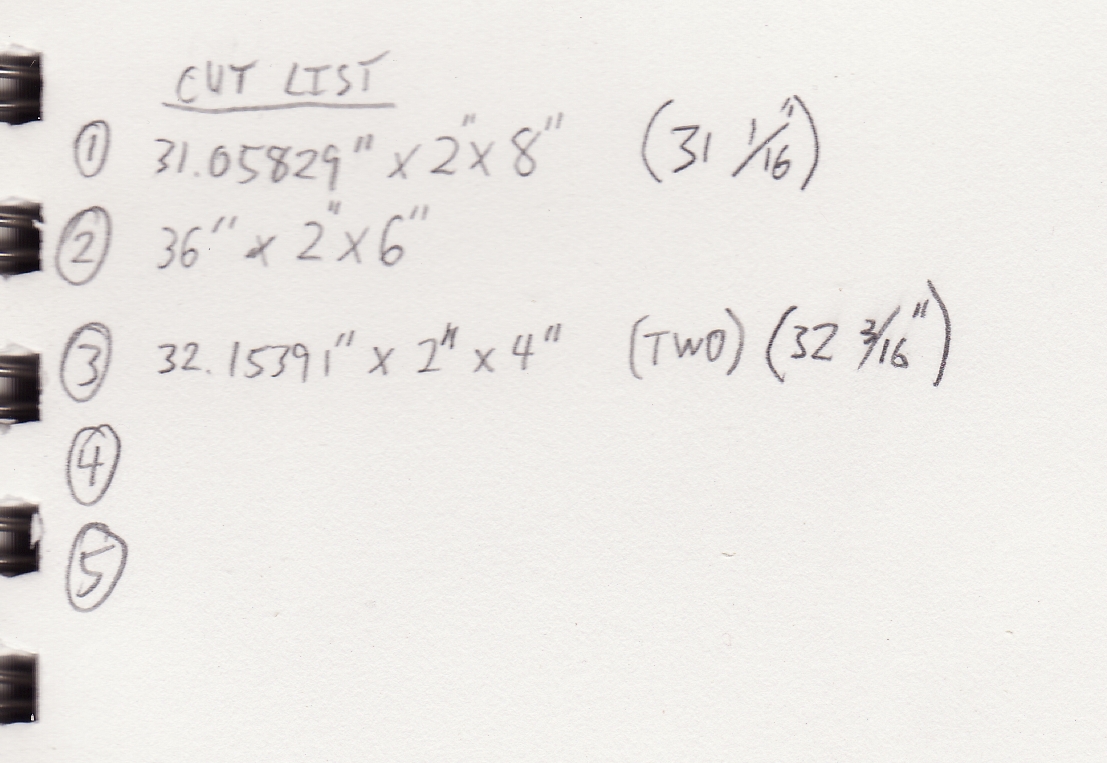 CUT LIST
① 31.05829" x 2" x 8" (31 1/16")
② 36" x 2" x 6"
③ 32.15391" x 2" x 4" (TWO) (32 3/16")
④
⑤